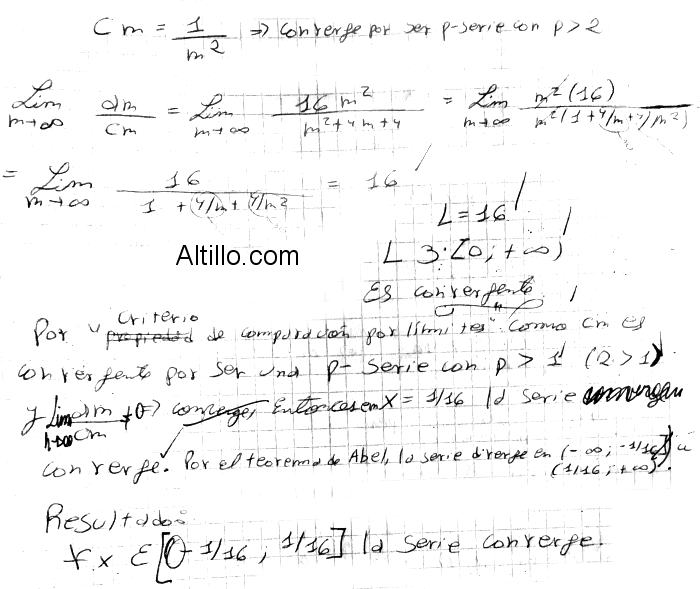 Cm = 1/m² ⇒ converge por ser p-serie con p > 2
Lim m→∞ dm/Cm = Lim m→∞ 16m²/(m²+4m+4) = Lim m→∞ m²(16)/(m²(1+4/m+4/m²))
= Lim m→∞ 16/(1+4/m+4/m²) = 16
L = 16
Altillo.com
L ∃: [0; +∞)
Es convergente
Por "criterio propiedad de comparación por límites" Como Cm es
convergente por ser una p-serie con p > 1 (2 > 1)
y Lim n→∞ dm/Cm ≠ 0 ⇒ converge, Entonces en X = 1/16 la serie
converge. Por el teorema de Abel, la serie diverge en (-∞; -1/16) u
(1/16; +∞).
Resultados:
∀x ∈ [-1/16; 1/16] la serie converge.